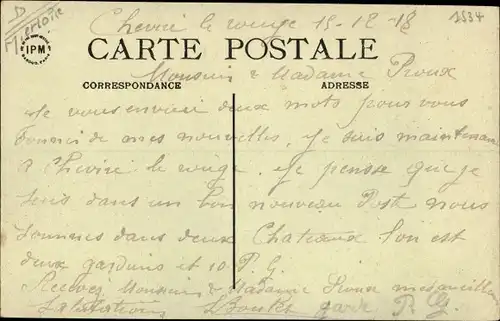 Cheviré le rouge 15-12-18
1534
D
IPM
CARTE POSTALE
Monsieur & Madame Proux
CORRESPONDANCE
ADRESSE
Je vous envoie deux mots pour vous
donner de mes nouvelles, Je suis maintenant
à Cheviré le rouge. Je pense que je
serai dans un bon nouveau Post nous
sommes dans deux Chateaux l'on est
deux gardiens et 10 P. G.
Recevez Monsieur & Madame Proux mes meilleures
Salutations garde P. G.